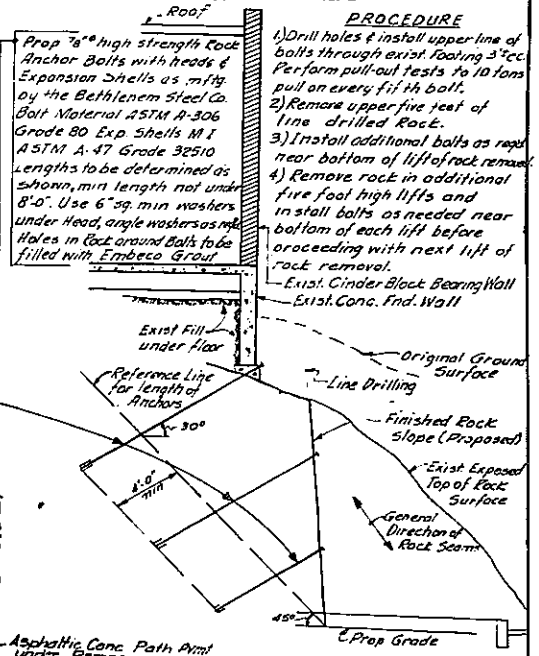 Roof
Prop 7/8"ø high strength Rock
Anchor Bolts with heads &
Expansion Shells as mftg.
by the Bethlehem Steel Co.
Bolt Material ASTM A-306
Grade 80 Exp. Shells M I
ASTM A-47 Grade 32510
Lengths to be determined as
shown, min length not under
8'-0". Use 6" sq. min washers
under Head, angle washers as
Holes in Rock around Bolts to be
filled with Embeco Grout
PROCEDURE
1) Drill holes & install upper line of
bolts through exist. Footing
Perform pull-out tests to 10 tons
pull on every fifth bolt.
2) Remove upper five feet of
line drilled Rock.
3) Install additional bolts as reqd
near bottom of lift of rock removal
4) Remove rock in additional
five foot high lifts and
install bolts as needed near
bottom of each lift before
proceeding with next lift of
rock removal.
Exist. Cinder Block Bearing Wall
Exist. Conc. Fnd. Wall
Exist Fill
under floor
Original Ground
Surface
Reference Line
for length of
Anchors
Line Drilling
30°
Finished Rock
Slope (Proposed)
Exist Exposed
Top of Rock
Surface
4'-0"
min
General
Direction of
Rock Seams
45°
Prop Grade
Asphaltic Conc Path Pvmt